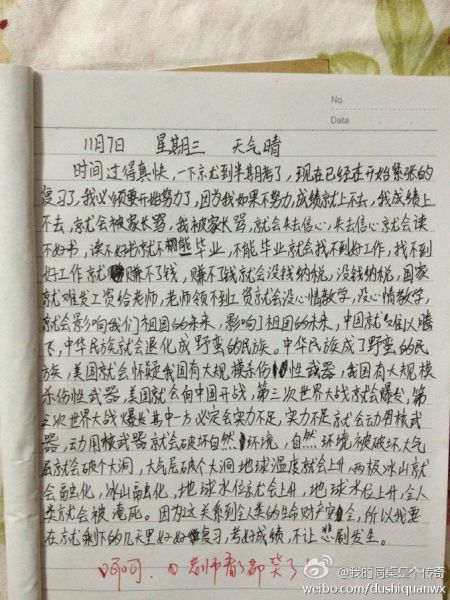 No.
Data
11月7日 星期三 天气晴
时间过得真快,一下就到半期考了,现在已经在开始紧张的
复习了,我必须要开始努力了,因为我如果不努力,成绩就上不去,我成绩上
不去,就会被家长骂,我被家长骂,就会失去信心,失去信心就会读
不好书,读不好书就不能毕业,不能毕业就会找不到好工作,找不到
好工作就赚不了钱,赚不了钱就会没钱纳税,没钱纳税,国家
就难发工资给老师,老师领不到工资就会没心情教学,没心情教学,
就会影响我们祖国的未来,影响了祖国的未来,中国就难以腾
飞,中华民族就会退化成野蛮的民族。中华民族成了野蛮的民
族,美国就会怀疑我国有大规模杀伤性武器,我国有大规模
杀伤性武器,美国就会向中国开战,第三次世界大战就会爆发,第
三次世界大战爆发其中一方必定会实力不足,实力不足就会动用核武
器,动用核武器就会破坏自然环境,自然环境被破坏,大气
层就会破个大洞,大气层破个大洞地球温度就会上升,两极冰山就
会融化,冰山融化,地球水位就会上升,地球水位上升,全人
类就会被淹死。因为这关系到全人类的生命财产安全,所以我要
在就剩下的几天里好好复习,考好成绩,不让悲剧发生。
呵呵,老师看了都笑了
@我的同桌是个传奇
weibo.com/dushiquanwx